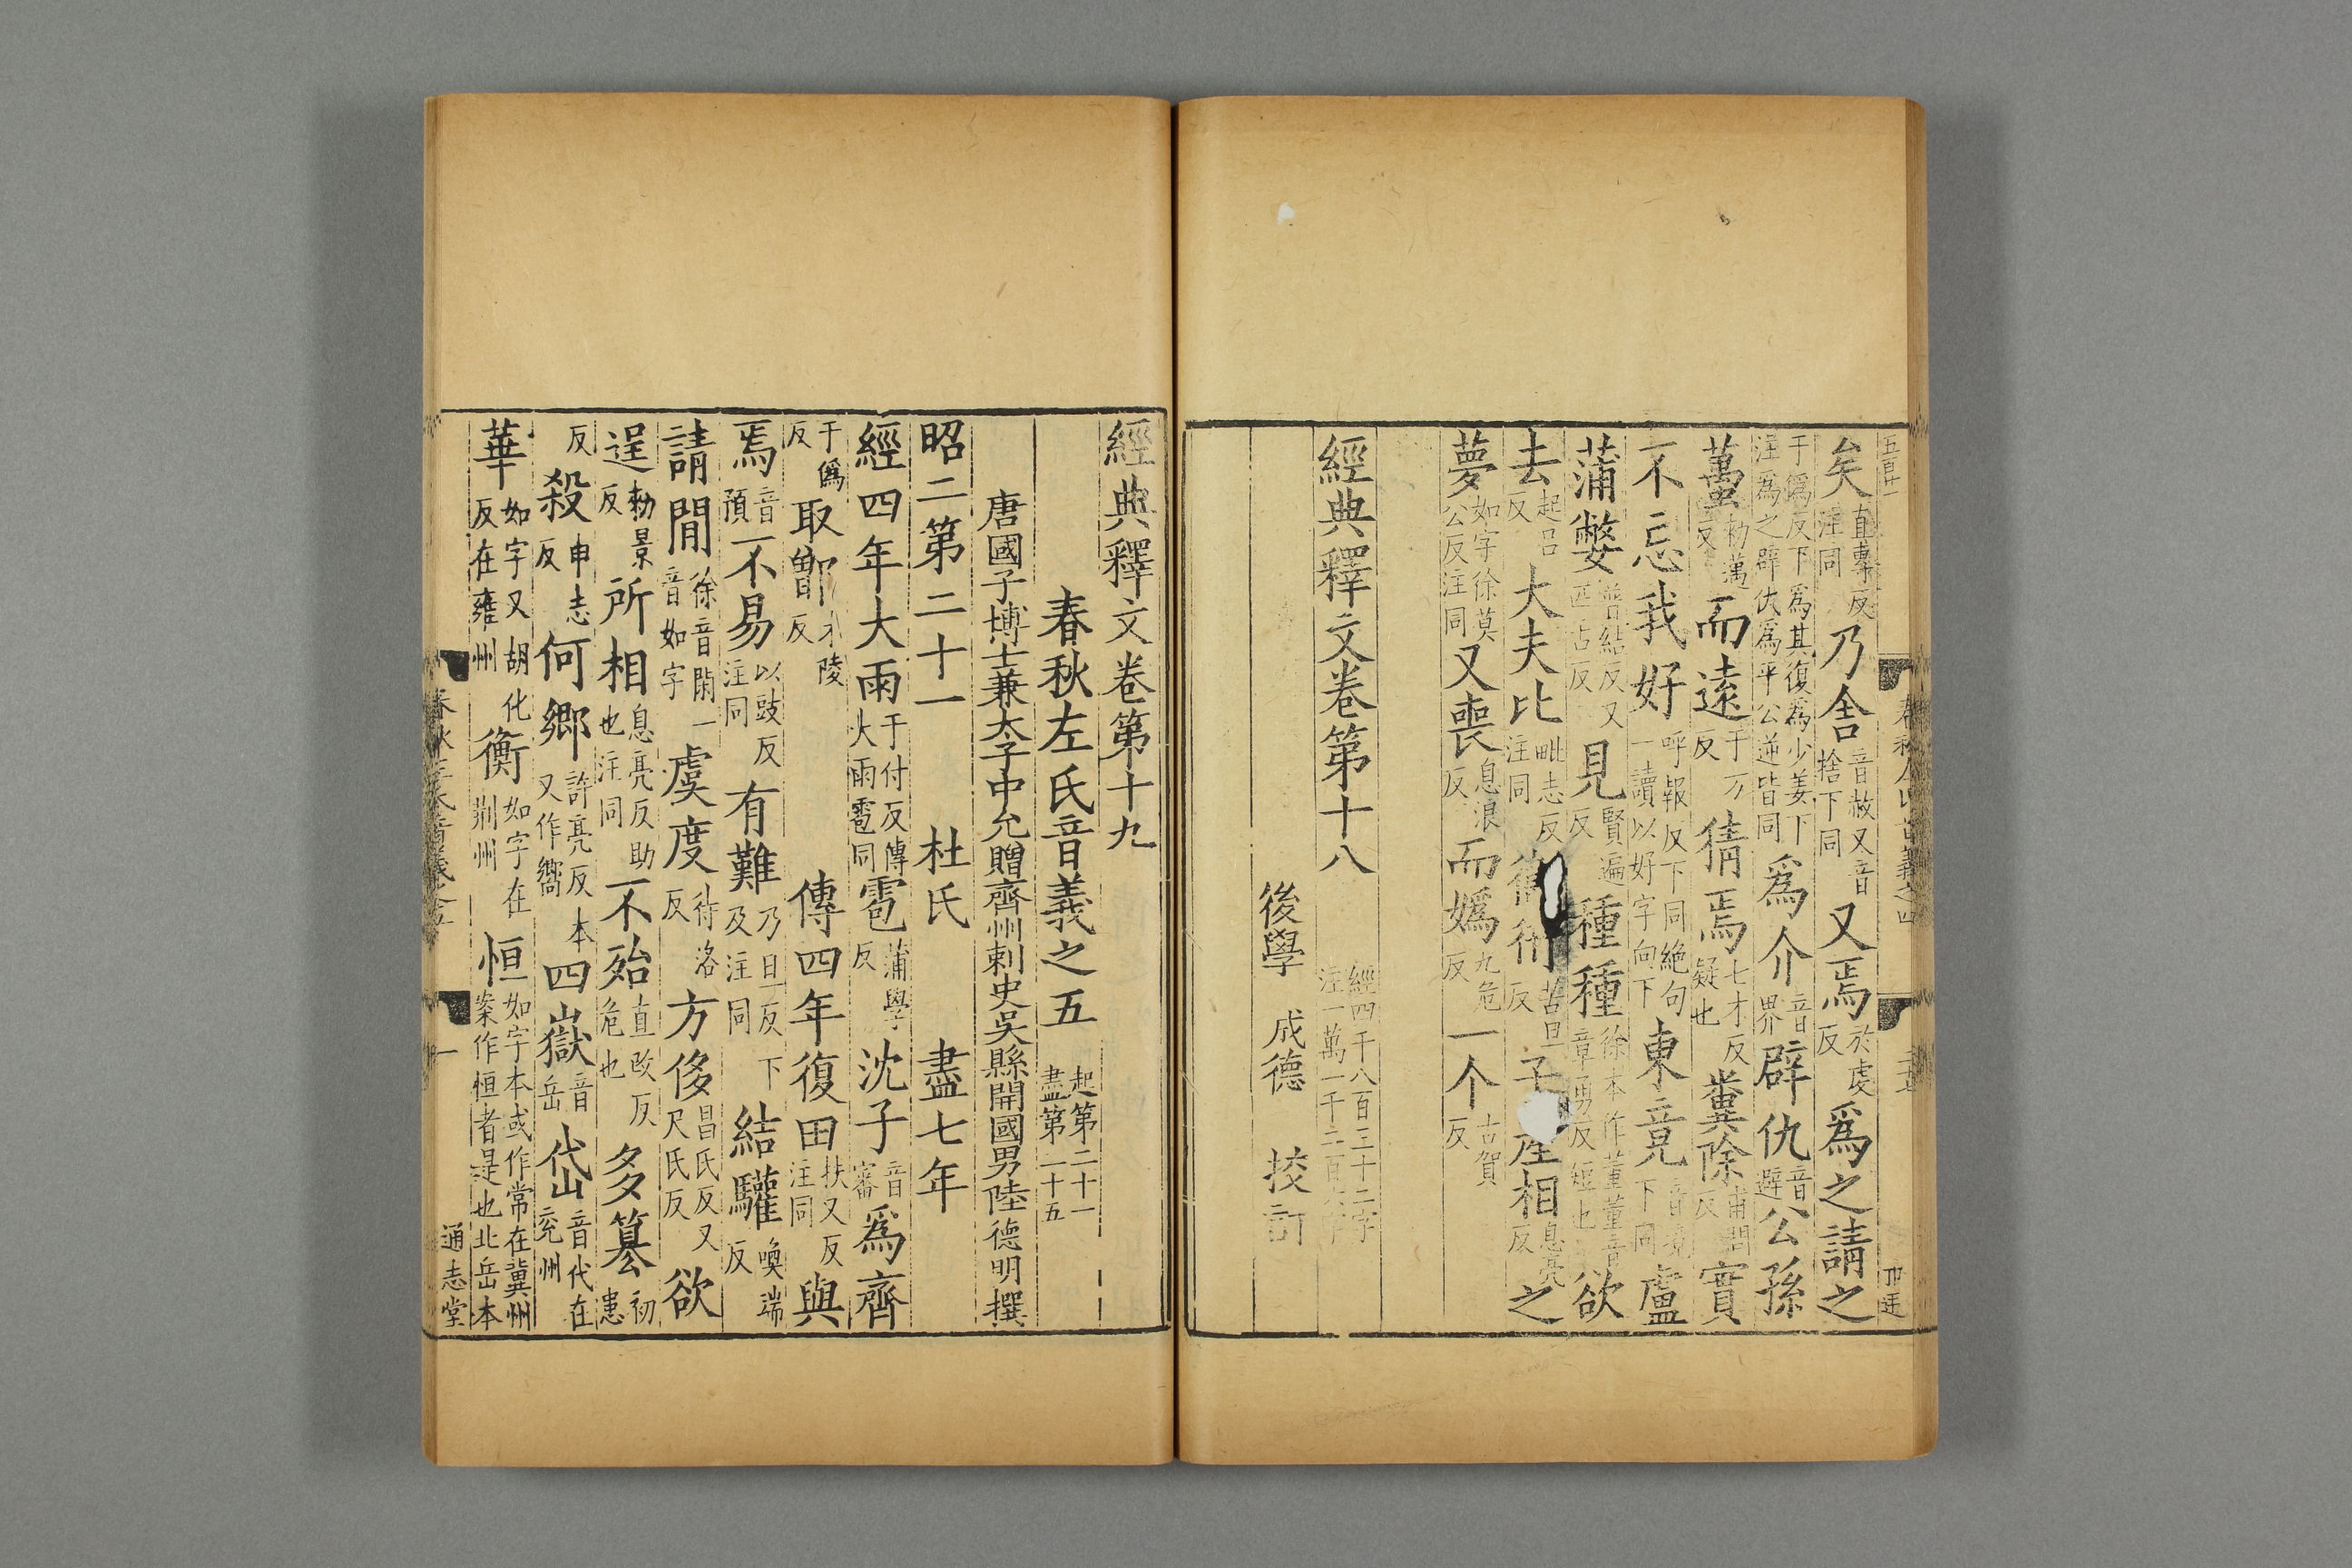 矣直專反注同乃舍音赦又音捨下同又焉於虔反爲之請之
于僞反下爲其復爲少姜下注爲之辟仇爲平公並皆同爲介音界辟仇音避公孫
蠆勑邁反而遠于万反猜焉七才反疑也糞除甫問反實
不忘我好呼報反下同絶句一讀以好字向下東竟音境下同盧
蒲嫳普結反又匹舌反見賢遍反種種徐本作董董音章勇反短也欲
去起呂反大夫比毗志反注同苦旦反子產相息亮反之
夢如字徐莫公反注同又喪息浪反而嬀九危反一个古賀反
經典釋文卷第十八經四千八百三十二字注一萬一千二百
後學 成德 挍訂
經典釋文卷第十九
春秋左氏音義之五起第二十一盡第二十五
唐國子博士兼太子中允贈齊州刺史吳縣開國男陸德明撰
昭二第二十一 杜氏 盡七年
經四年大雨于付反傳大雨雹同雹蒲學反沈子音審爲齊
于僞反取鄫才陵反 傳四年復田扶又反注同與
焉音預不易以豉反注同有難乃旦反下及注同結驩喚端反
請間徐音閑一音如字虞度待洛反方侈昌氏反又尺氏反欲
逞勑景反所相息亮反助也注同不殆直改反危也多篡初患
反殺申志反何鄉許亮反本又作嚮四嶽音岳岱音代在兖州
華如字又胡化反在雍州衡如字在荆州恒如字本或作常在冀州案作恒者是也北岳本
通志堂